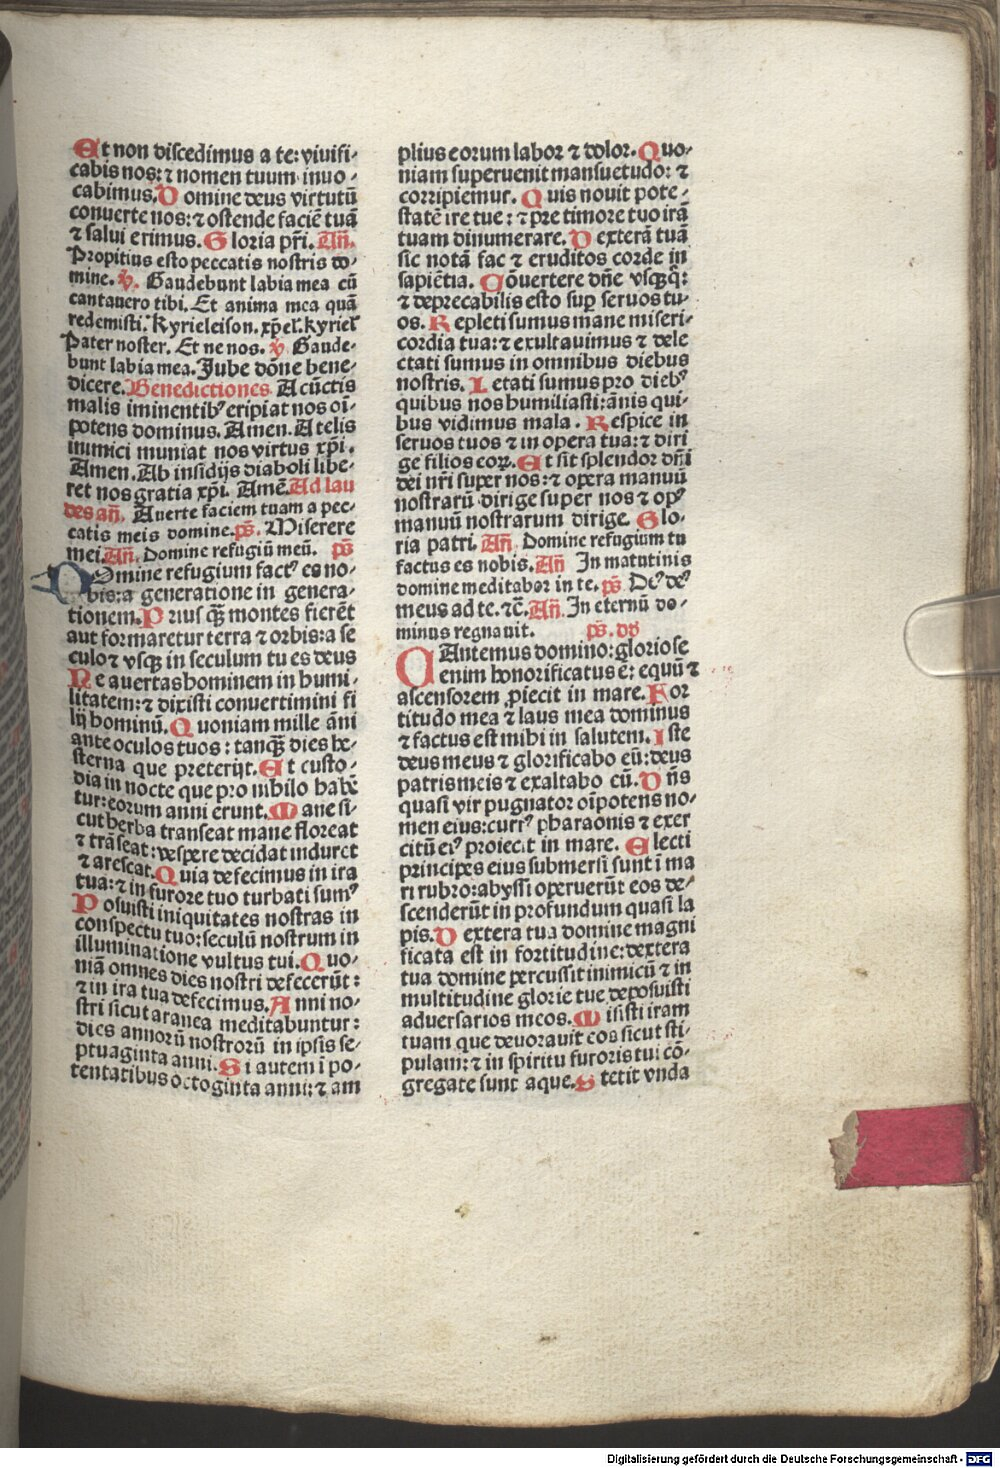 Et non discedimus a te: vivifi-
cabis nos: ⁊ nomen tuum invo-
cabimus. Domine deus virtutū
converte nos: ⁊ ostende faciē tuā
⁊ salui erimus. Gloria pr̄i. Añ.
Propitius esto peccatis nostris do-
mine. ℣. Gaudebunt labia mea cū
cantavero tibi. Et anima mea quā
redemisti. Kyrieleison. xp̄el. kyriel
Pater noster. Et ne nos. ℣ Gaude-
bunt labia mea. Jube dōne bene-
dicere. Benedictiones A cūctis
malis iminentibꝰ eripiat nos oī-
potens dominus. Amen. A telis
inimici muniat nos virtus xp̄i.
Amen. Ab insidijs diaboli libe-
ret nos gratia xp̄i. Amē. Ad lau
des añ. Auerte faciem tuam a pec-
catis meis domine. ps̄. Miserere
mei. Añ. Domine refugiū meū. ps̄
Domine refugium factꝰ es no-
bis: a generatione in genera-
tionem. Prius qȝ montes fierēt
aut formaretur terra ⁊ orbis: a se
culo ⁊ vsqȝ in seculum tu es deus
Ne auertas hominem in humi-
litatem: ⁊ dixisti convertimini fi
lij hominū. Quoniam mille āni
ante oculos tuos: tanqȝ dies he-
sterna que preterijt. Et custo-
dia in nocte que pro nihilo habē
tur: eorum anni erunt. Mane si-
cut herba transeat mane floreat
⁊ trāseat: vespere decidat induret
⁊ arescat. Quia defecimus in ira
tua: ⁊ in furore tuo turbati sumꝰ
Posuisti iniquitates nostras in
conspectu tuo: seculū nostrum in
illuminatione vultus tui. Quo-
niā omnes dies nostri defecerūt:
⁊ in ira tua defecimus. Anni no-
stri sicut aranea meditabuntur:
dies annorū nostrorū in ipsis se-
ptuaginta anni. Si autem ī po-
tentatibus octoginta anni: ⁊ am
plius eorum labor ⁊ dolor. Quo-
niam superuenit mansuetudo: ⁊
corripiemur. Quis novit pote-
statē ire tue: ⁊ pre timore tuo irā
tuam dinumerare. Dexterā tuā
sic notā fac ⁊ eruditos corde in
sapiētia. Cōuertere dñe vsqȝqȝ:
⁊ deprecabilis esto suꝑ seruos tu-
os. Repleti sumus mane miseri-
cordia tua: ⁊ exultauimus ⁊ dele
ctati sumus in omnibus diebus
nostris. Letati sumus pro diebꝰ
quibus nos humiliasti: ānis qui-
bus vidimus mala. Respice in
seruos tuos ⁊ in opera tua: ⁊ diri
ge filios eoꝝ. Et sit splendor dñi
dei nr̄i super nos: ⁊ opera manuū
nostrarū dirige super nos ⁊ opꝰ
manuū nostrarum dirige. Glo-
ria patri. Añ. Domine refugium tu
factus es nobis. Añ In matutinis
domine meditabor in te. ps̄ Deꝰ deꝰ
meus ad te. ⁊c̄. Añ. In eternū do-
minus regnauit. ps̄. dd
CAntemus domino: gloriose
enim honorificatus ē: equū ⁊
ascensorem ꝓiecit in mare. For
titudo mea ⁊ laus mea dominus
⁊ factus est mihi in salutem. Iste
deus meus ⁊ glorificabo eū: deus
patris meis ⁊ exaltabo eū. Dñs
quasi vir pugnator oīpotens no-
men eius: currꝰ pharaonis ⁊ exer
citū eiꝰ proiecit in mare. Electi
principes eius submersi sunt ī ma
ri rubro: abyssi operuerūt eos de-
scenderūt in profundum quasi la
pis. Dextera tua domine magni
ficata est in fortitudine: dextera
tua domine percussit inimicū ⁊ in
multitudine glorie tue deposuisti
adversarios meos. Misisti iram
tuam que devoravit eos sicut sti-
pulam: ⁊ in spiritu furoris tui cō-
gregate sunt aque. Stetit vnda
Digitalisierung gefördert durch die Deutsche Forschungsgemeinschaft - DFG